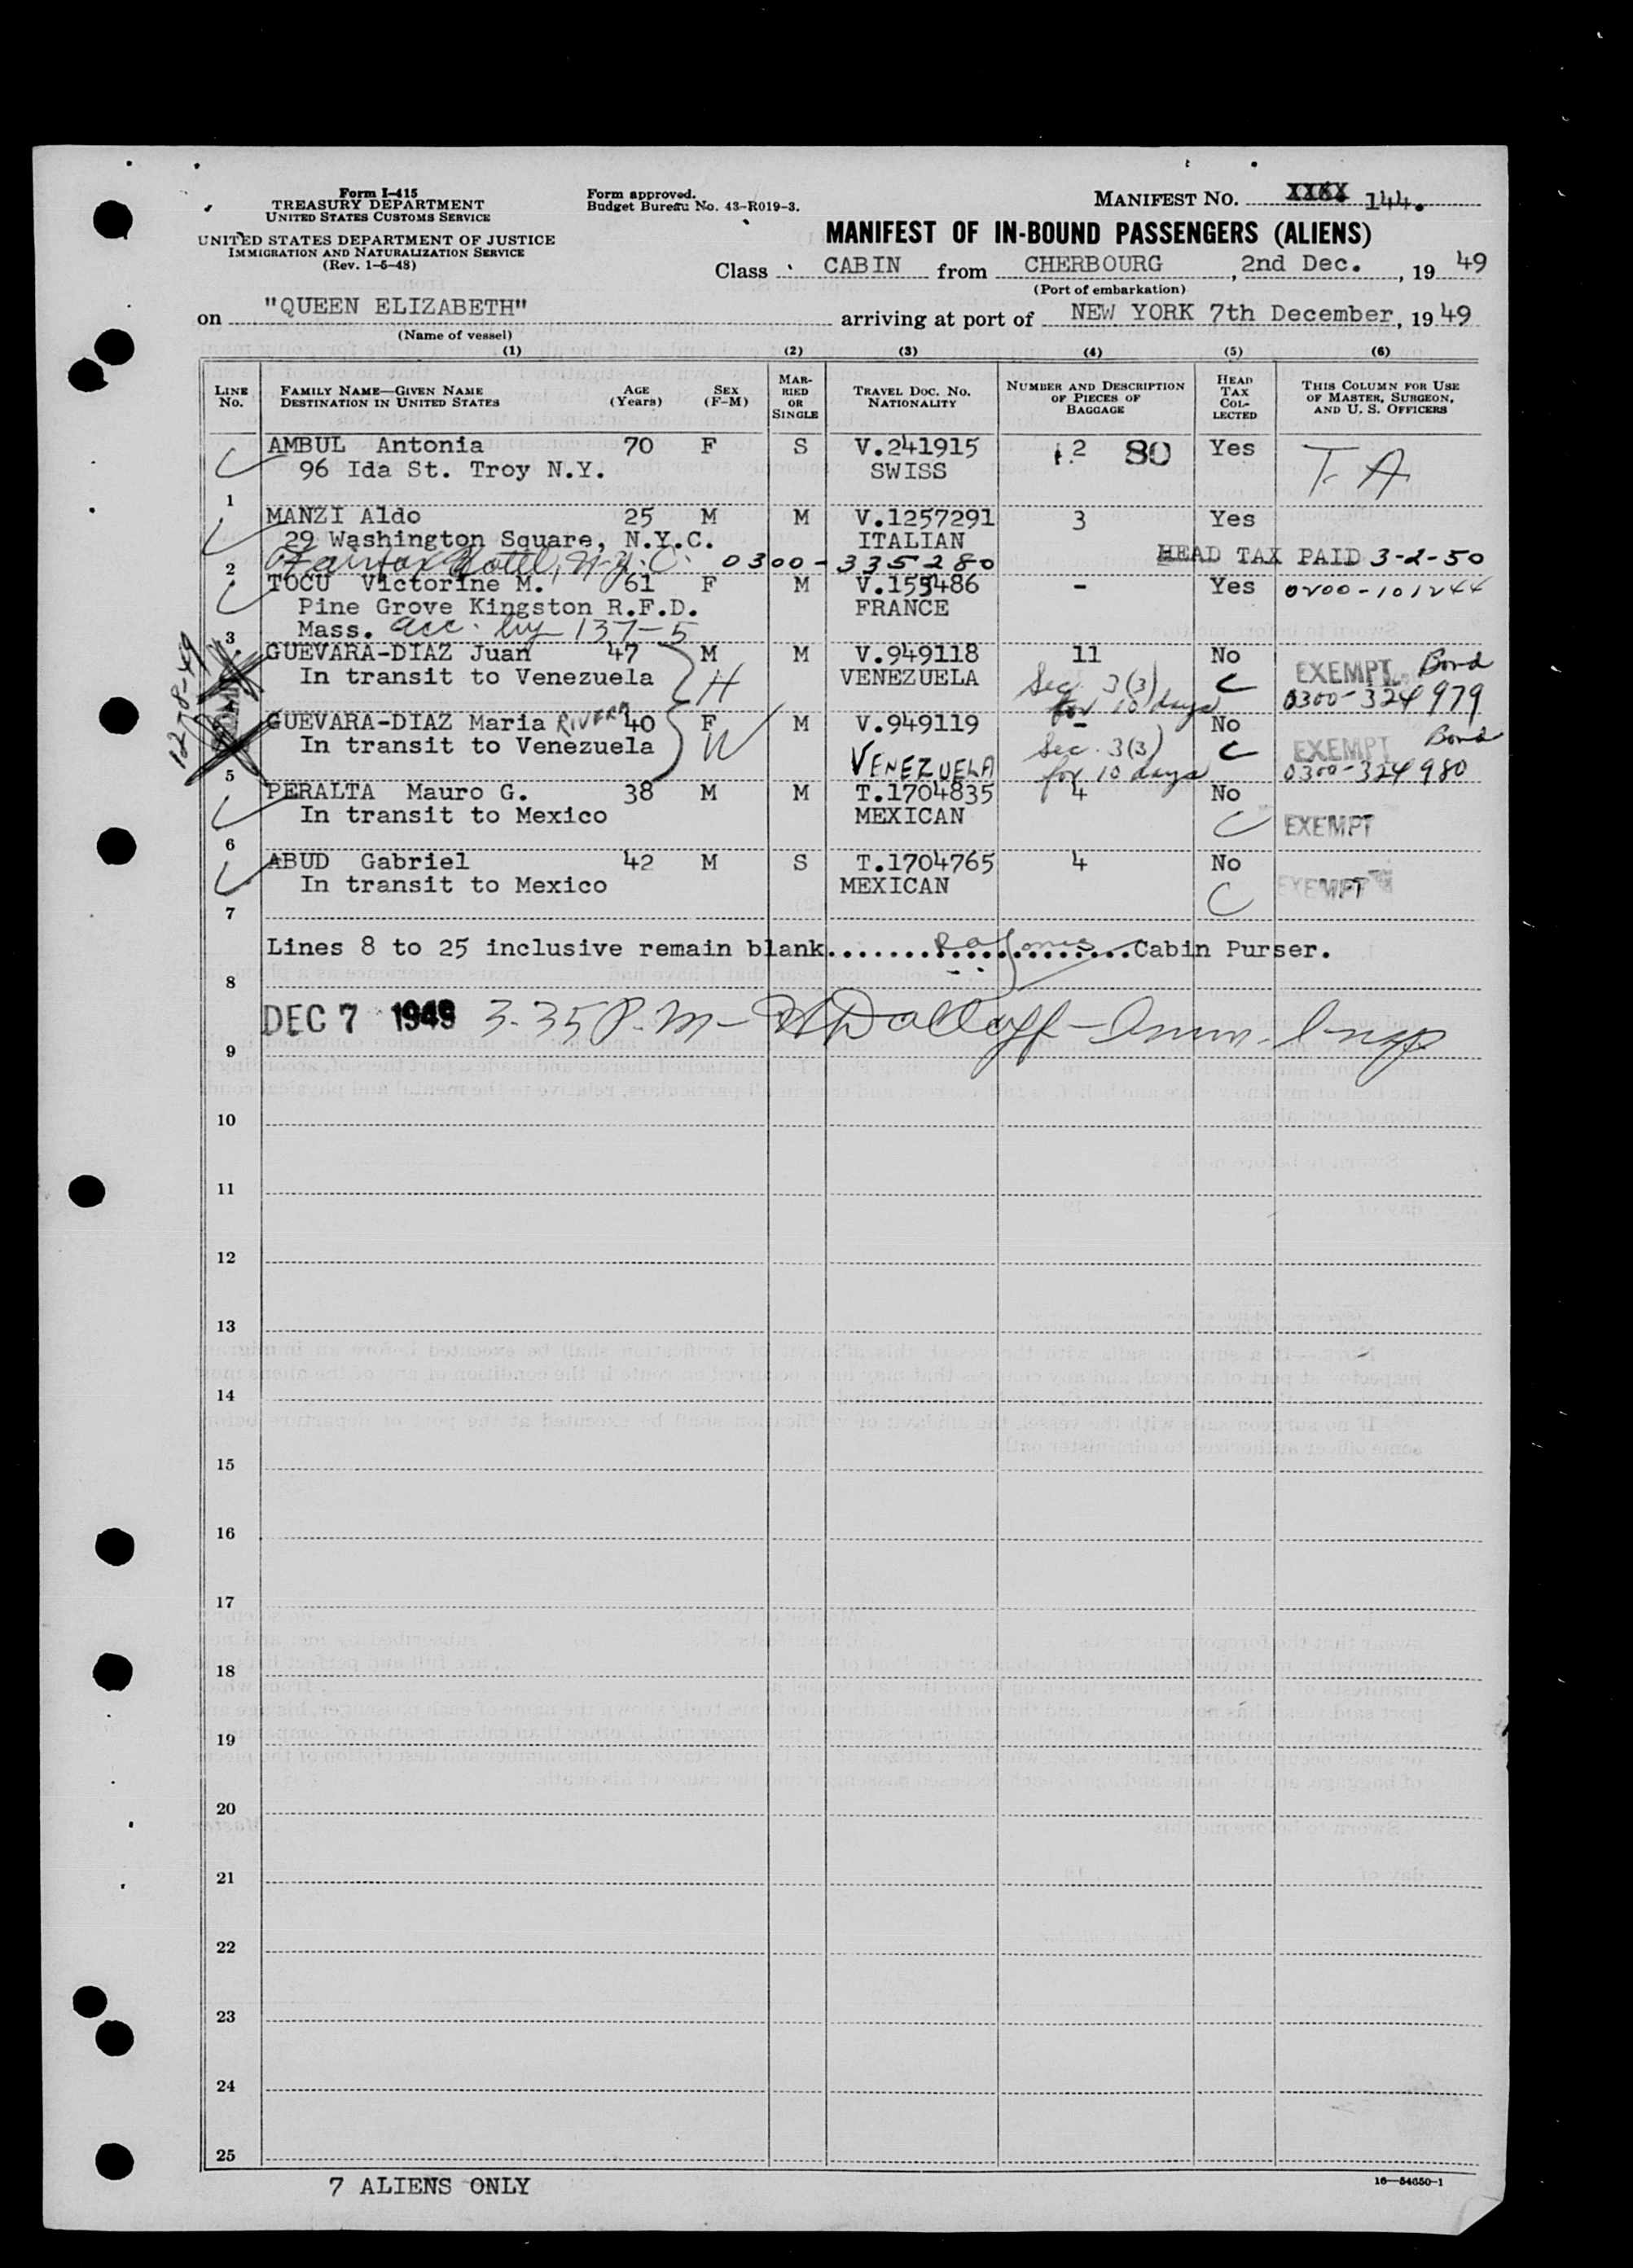 Form I-415
TREASURY DEPARTMENT
UNITED STATES CUSTOMS SERVICE
UNITED STATES DEPARTMENT OF JUSTICE
IMMIGRATION AND NATURALIZATION SERVICE
(Rev. 1-5-48)
Form approved.
Budget Bureau No. 43-R019-3.
MANIFEST NO. 144.
MANIFEST OF IN-BOUND PASSENGERS (ALIENS)
Class CABIN from CHERBOURG, 2nd Dec., 1949
(Port of embarkation)
on "QUEEN ELIZABETH" arriving at port of NEW YORK 7th December, 1949
(Name of vessel)
(1) (2) (3) (4) (5) (6)
LINE NO. FAMILY NAME—GIVEN NAME DESTINATION IN UNITED STATES AGE (Years) SEX (F-M) MARRIED OR SINGLE TRAVEL DOC. NO. NATIONALITY NUMBER AND DESCRIPTION OF PIECES OF BAGGAGE HEAD TAX COLLECTED THIS COLUMN FOR USE OF MASTER, SURGEON, AND U. S. OFFICERS
AMBUL Antonia 70 F S V.241915 2 80 Yes T. A
96 Ida St. Troy N.Y. SWISS
1
MANZI Aldo 25 M M V.1257291 3 Yes
29 Washington Square, N.Y.C. ITALIAN
2 Fairfax Hotel, N.Y.C. 0300-335280 HEAD TAX PAID 3-2-50
TOCU Victorine M. 61 F M V.155486 - Yes 0200-101244
Pine Grove Kingston R.F.D. FRANCE
3 Mass. acc. by 137-5
GUEVARA-DIAZ Juan 47 M M V.949118 11 No EXEMPT Bond
In transit to Venezuela H VENEZUELA Sec. 3(3) for 10 days C 0300-324979
12-8-49
GUEVARA-DIAZ Maria RIVERA 40 F M V.949119 - No EXEMPT Bond
In transit to Venezuela W VENEZUELA Sec. 3(3) for 10 days C 0300-324980
5
PERALTA Mauro G. 38 M M T.1704835 4 No
In transit to Mexico MEXICAN C EXEMPT
6
ABUD Gabriel 42 M S T.1704765 4 No
In transit to Mexico MEXICAN C EXEMPT
7
Lines 8 to 25 inclusive remain blank....................Cabin Purser.
8
DEC 7 1949 3-35 P.M-
9
10
11
12
13
14
15
16
17
18
19
20
21
22
23
24
25
7 ALIENS ONLY
16—54650-1